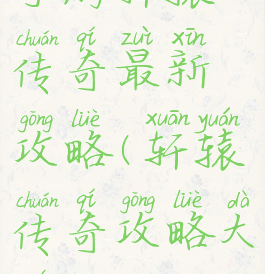 chuán qí zuì xīn
传奇最新
gōng lüè xuān yuán
攻略(轩辕
chuán qí gōng lüè dà
传奇攻略大